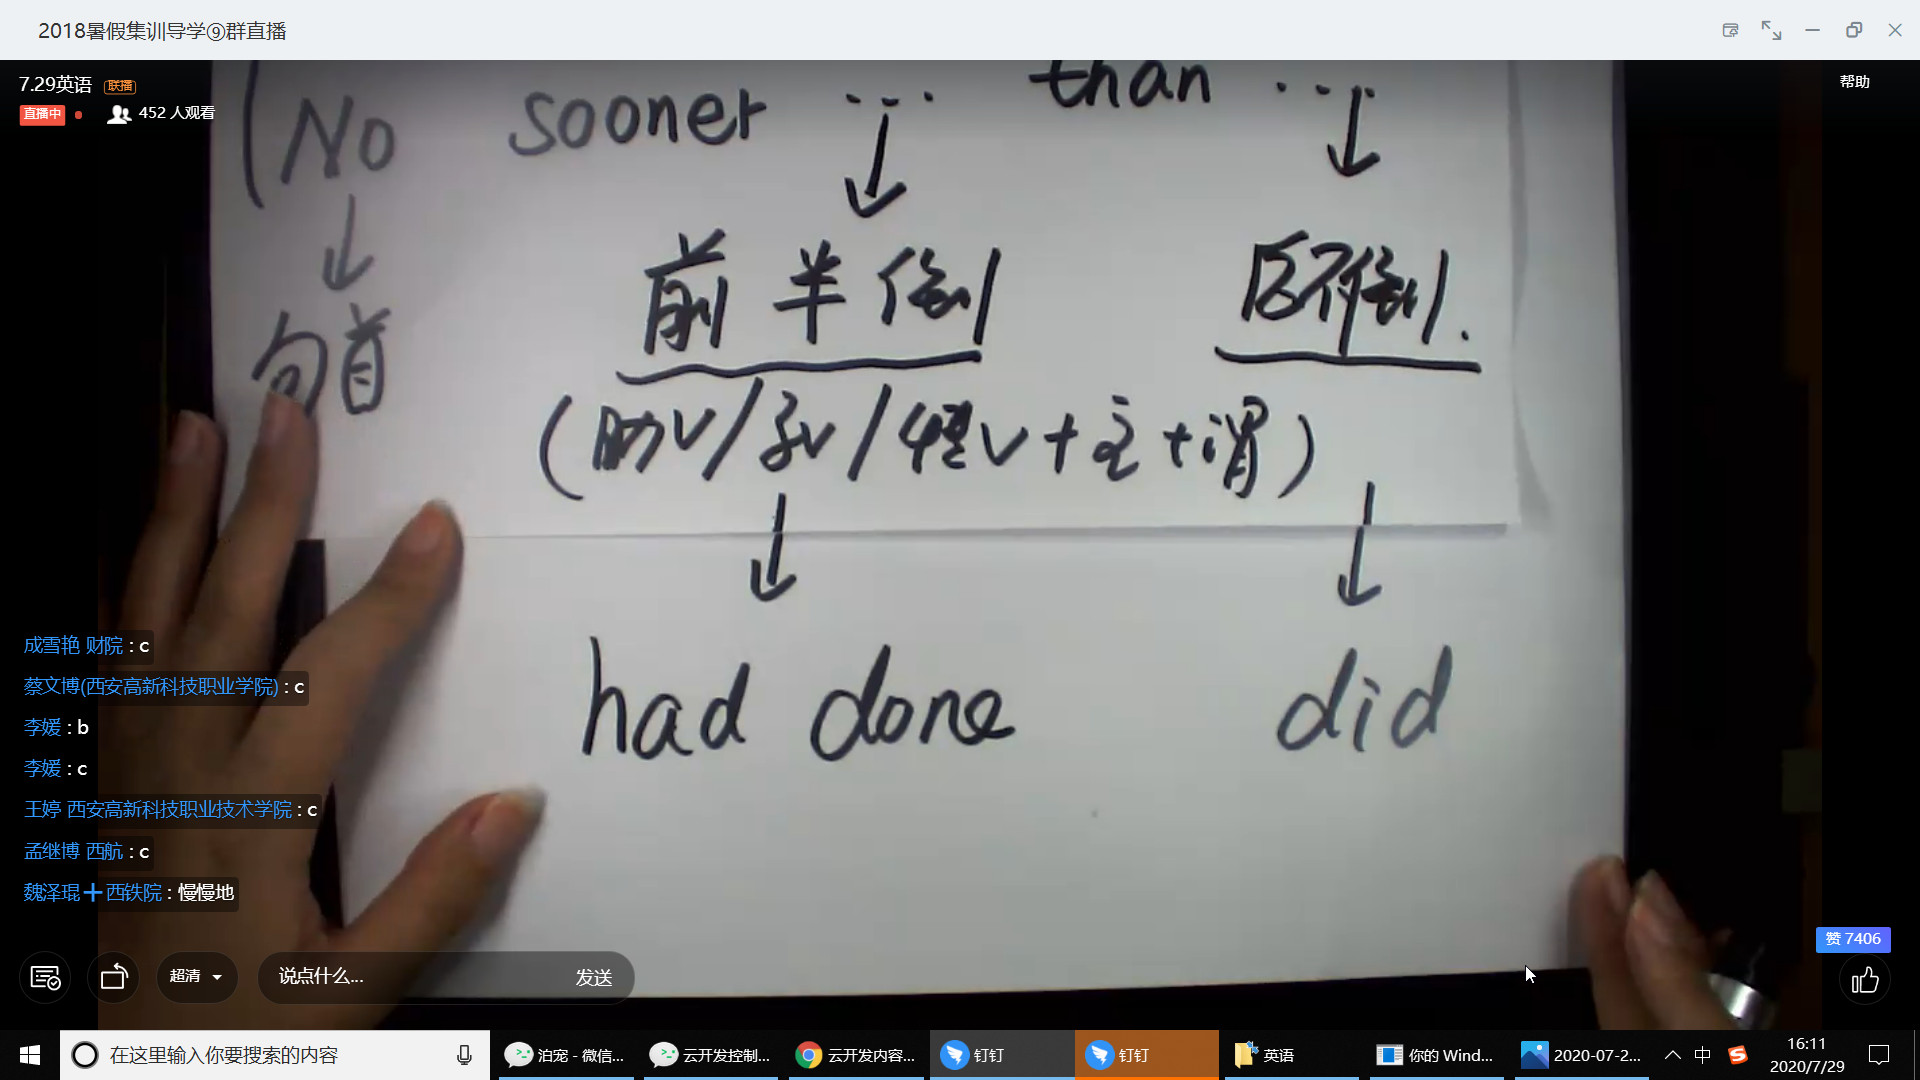 2018暑假集训导学⑨群直播
7.29英语 联播
帮助
直播中 452 人观看
No sooner ... than ...
句首 前半倒 后不倒.
(助v/系v/情v+主+谓)
had done did
成雪艳 财院 : c
蔡文博(西安高新科技职业学院) : c
李媛 : b
李媛 : c
王婷 西安高新科技职业技术学院 : c
孟继博 西航 : c
魏泽琨➕西铁院 : 慢慢地
赞 7406
超清 说点什么... 发送
在这里输入你要搜索的内容 泊宠 - 微信... 云开发控制... 云开发内容... 钉钉 钉钉 英语 你的 Wind... 2020-07-2... 中 16:11
2020/7/29